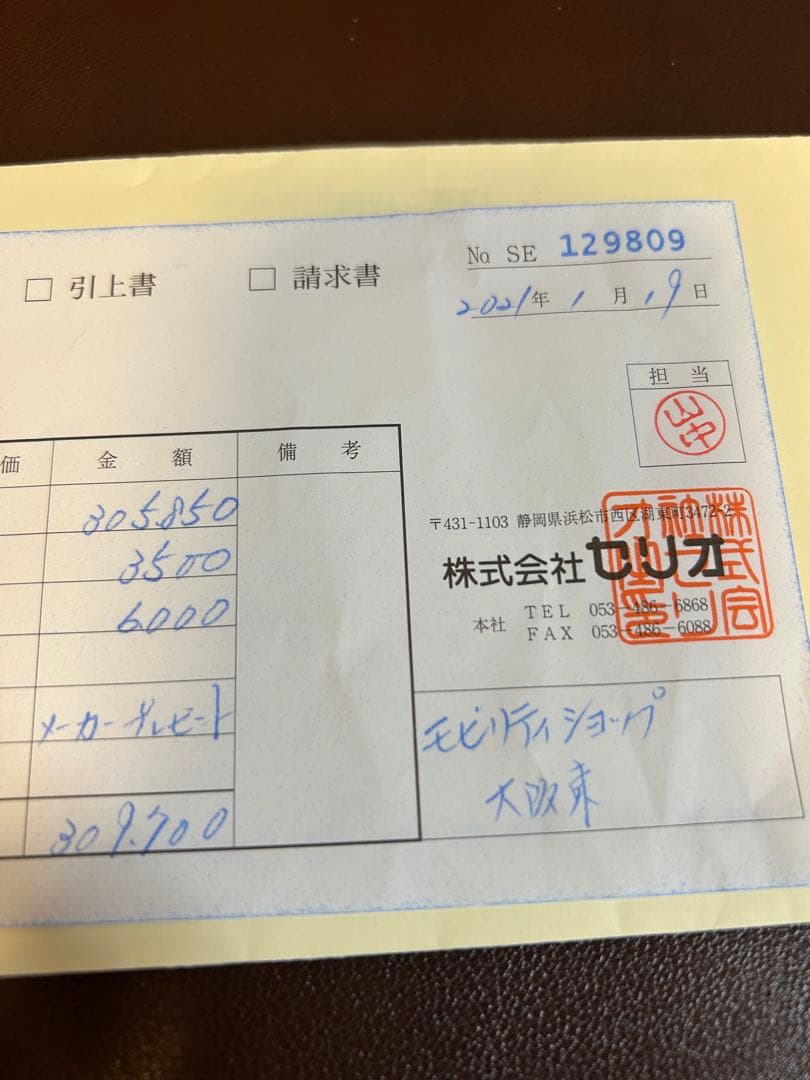 No SE 129809
□ 引上書 □ 請求書
2021年 1月 19日
担当
山中
価 金額 備考
305,850
3500
6000
メーカープレゼント
309,700
〒431-1103 静岡県浜松市西区湖東町3472-2
株式会社セリオ
本社 TEL 053-486-6868
FAX 053-486-6088
モビリティショップ
大阪東